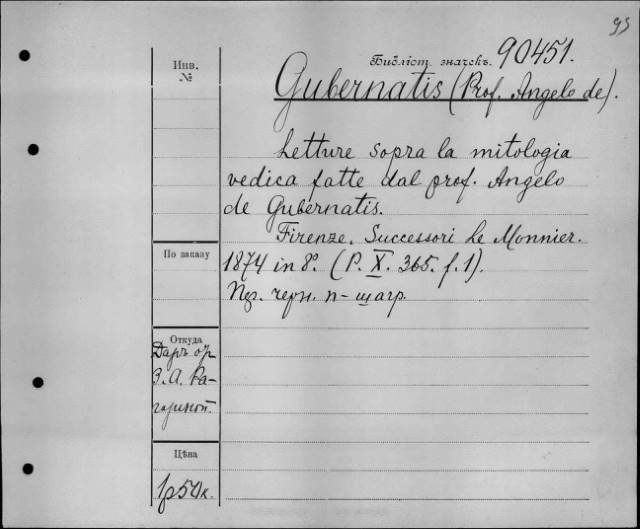 95
Библіот. значекъ. 90451.
Инв.
№
Gubernatis (Prof. Angelo de).
Letture sopra la mitologia
vedica fatte dal prof. Angelo
de Gubernatis.
Firenze. Successori Le Monnier.
По заказу
1874 in 8º. (P. X. 365. f. 1).
Пер. черн. п-шагр.
Откуда
Даръ от
З. А. Ра-
гозиной.
Цѣна
1р50к.